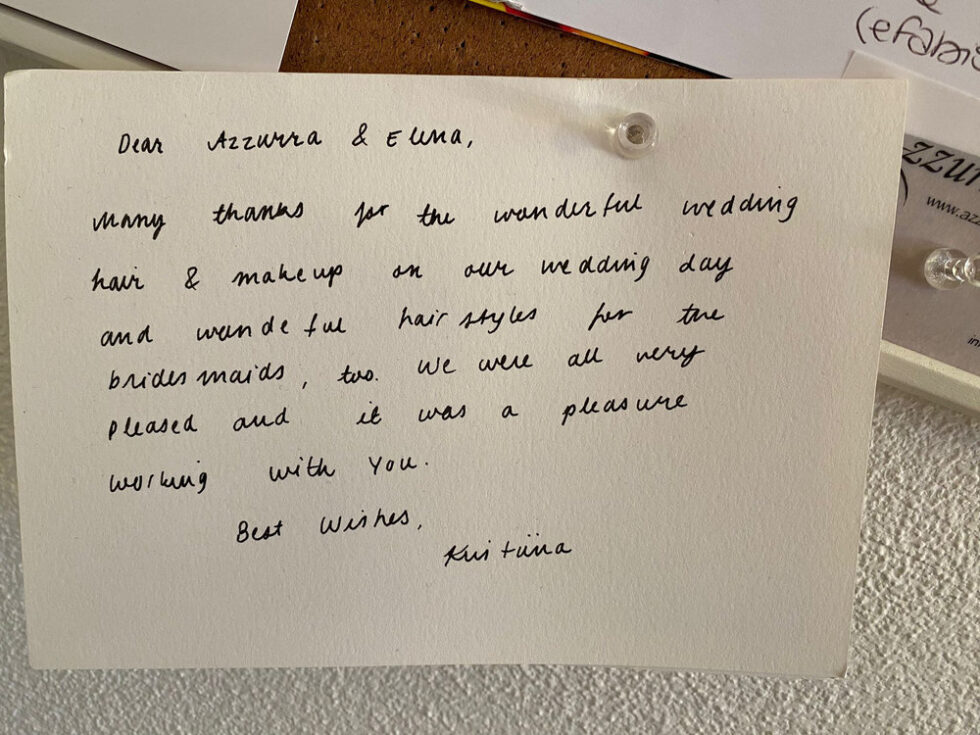 Dear Azzurra & Elena,
Many thanks for the wonderful wedding
hair & makeup on our wedding day
and wondeful hairstyles for the
bridesmaids, too. We were all very
pleased and it was a pleasure
working with You.
Best Wishes,
Kristiina
(efabri
zzur
www.az
in